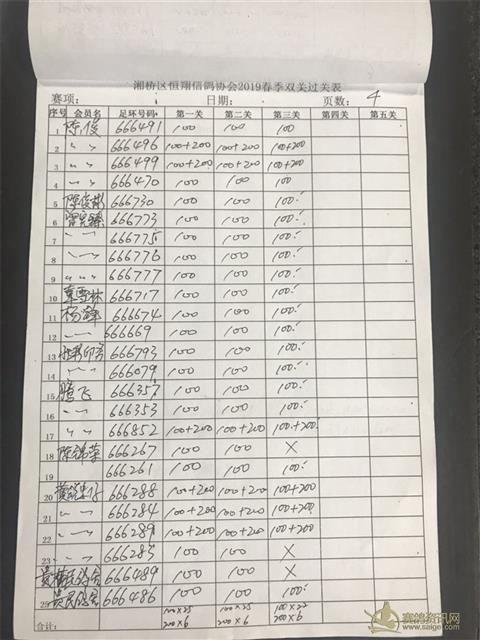 湘桥区恒翔信鸽协会2019春季双关过关表
赛项: 日期: 页数: 4
序号 会员名 足环号码 第一关 第二关 第三关 第四关 第五关
1 陈俊 666491 100 100 100
2 〃 〃 666496 100+200 100+200 100+200
3 〃 〃 666499 100+200 100+200 100+200
4 〃 〃 666470 100 100 100
5 陈俊彬 666730 100 100 100
6 666773 100 100 100
7 〃 〃 666775 100 100 100
8 〃 〃 666776 100 100 100
9 〃 〃 666777 100 100 100
10 林 666717 100 100 100
11 杨 666674 100 100 100
12 〃 〃 666669 100 100 100
13 666793 100 100 100
14 〃 〃 666079 100 100 100
15 腾飞 666357 100 100 100
16 〃 〃 666353 100 100 100
17 〃 〃 666852 100+200 100+200 100+200
18 陈锦荣 666267 100 100 ×
19 666261 100 100 100
20 黄 666288 100+200 100+200 100+200
21 〃 〃 666284 100+200 100+200 100+200
22 〃 〃 666289 100+200 100+200 100+200
23 〃 〃 666283 100 100 ×
666489 100 100 ×
25 666486 100 100 100
合计: 100×25 100×25 100×22
200×6 200×6 200×6
赛鸽资讯网
www.saige.com